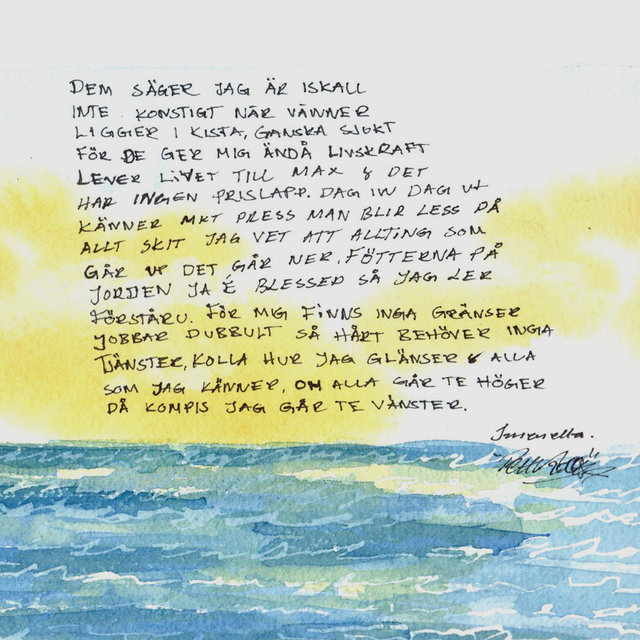 DEM SÄGER JAG ÄR ISKALL
INTE KONSTIGT NÄR VÄNNER
LIGGER I KISTA, GANSKA SJUKT
FÖR DE GER MIG ÄNDÅ LIVSKRAFT
LEVER LIVET TILL MAX & DET
HAR INGEN PRISLAPP. DAG IN DAG UT
KÄNNER MKT PRESS MAN BLIR LESS PÅ
ALLT SKIT JAG VET ATT ALLTING SOM
GÅR UP DET GÅR NER, FÖTTERNA PÅ
JORDEN JA É BLESSED SÅ JAG LER
FÖRSTÅRU. FÖR MIG FINNS INGA GRÄNSER
JOBBAR DUBBULT SÅ HÅRT BEHÖVER INGA
TJÄNSTER, KOLLA HUR JAG GLÄNSER & ALLA
SOM JAG KÄNNER, OM ALLA GÅR TE HÖGER
DÅ KOMPIS JAG GÅR TE VÄNSTER.